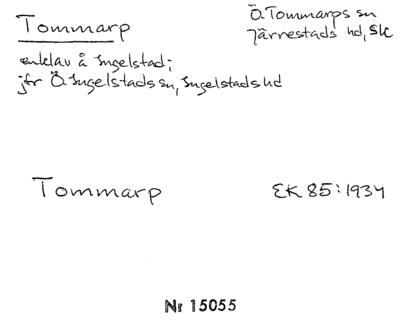 Tommarp
Ö. Tommarps sn
Järrestads hd, Sk
enklav å Ingelstad;
jfr Ö. Ingelstads sn, Ingelstads hd
Tommarp
EK 85:1934
Nr 15055